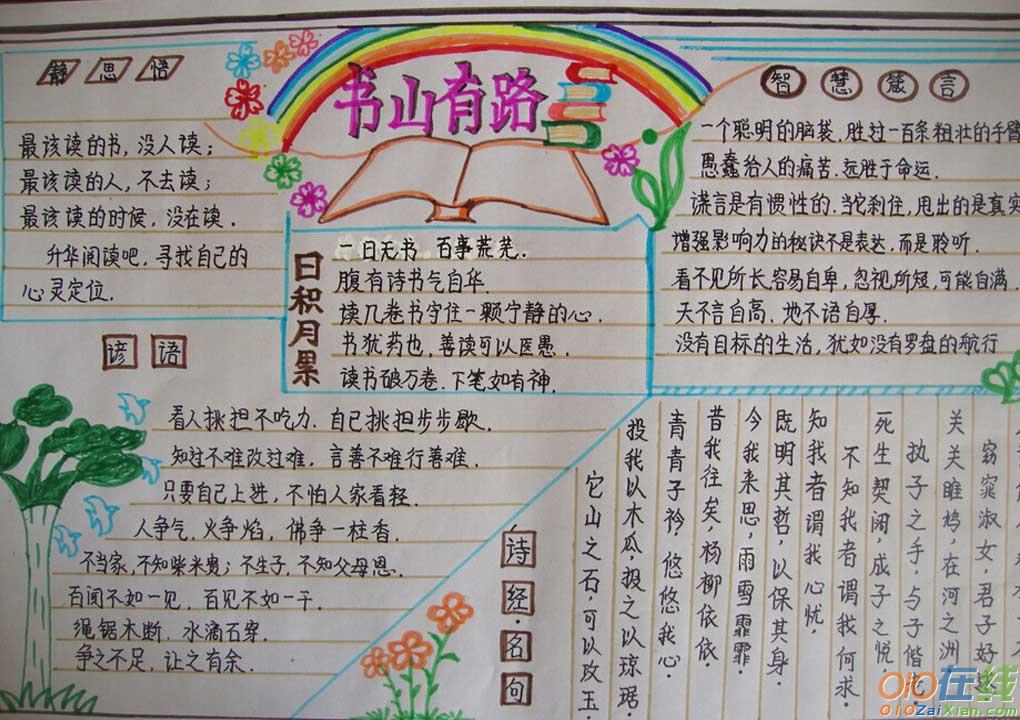 书山有路
静思悟
最该读的书,没人读;
最该读的人,不去读;
最该读的时候,没在读.
升华阅读吧,寻找自己的
心灵定位.
日积月累
一日无书 百事荒芜.
腹有诗书气自华.
读几卷书守住一颗宁静的心.
书犹药也,善读可以医愚.
读书破万卷.下笔如有神.
智慧箴言
一个聪明的脑袋,胜过一百条粗壮的手臂
愚蠢给人的痛苦.远胜于命运.
谎言是有惯性的.当它刹住,甩出的是真实
增强影响力的秘诀不是表达,而是聆听.
看不见所长,容易自卑,忽视所短,可能自满.
天不言自高、地不语自厚.
没有目标的生活,犹如没有罗盘的航行
谚语
看人挑担不吃力.自己挑担步步歇.
知过不难改过难,言善不难行善难.
只要自己上进,不怕人家看轻.
人争气,火争焰,佛争一柱香.
不当家,不知柴米贵;不生子,不知父母恩.
百闻不如一见,百见不如一干.
绳锯木断.水滴石穿.
争之不足,让之有余.
诗经·名句
窈窕淑女,君子好逑
关关雎鸠,在河之洲
执子之手,与子偕老
死生契阔,成子之悦,
不知我者谓我何求
知我者谓我心忧,
既明其哲,以保其身.
今我来思,雨雪霏霏.
昔我往矣,杨柳依依.
青青子衿,悠悠我心.
投我以木瓜.报之以琼琚.
它山之石,可以攻玉.
010在线
010ZaiXian.com